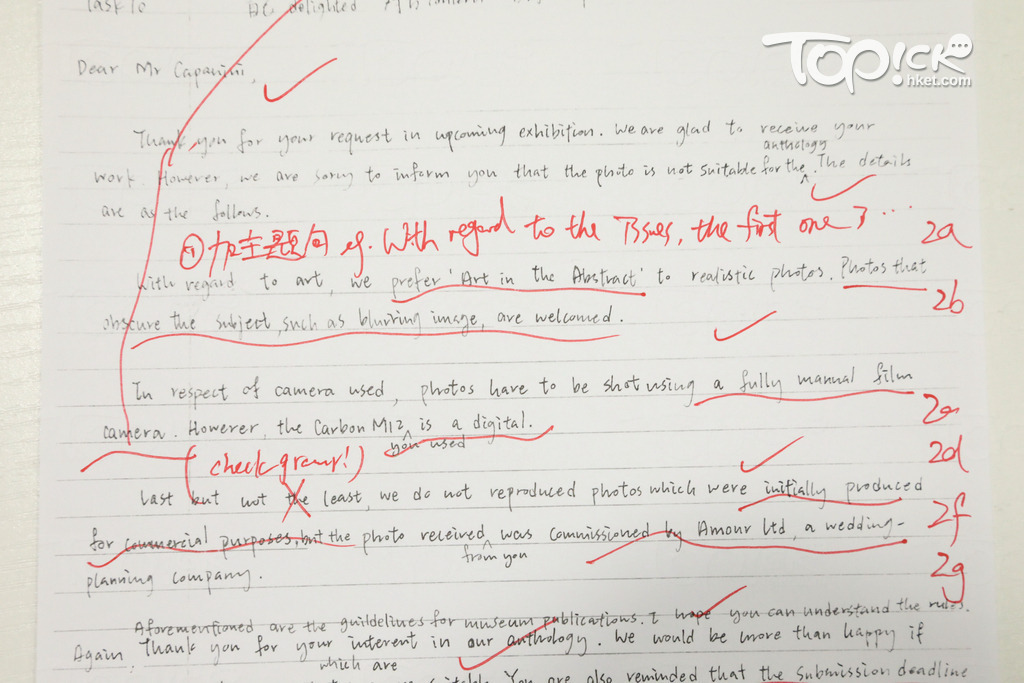 Task 10
Be delighted
TOPICK
hket.com
Dear Mr Capanini,
Thank you for your request in upcoming exhibition. We are glad to receive your
anthology
work. However, we are sorry to inform you that the photo is not suitable for the ^. The details
are as the follows.
① 加主題句 eg. With regard to the issues, the first one is ...
2a
With regard to art, we prefer 'Art in the Abstract' to realistic photos. Photos that
2b
obscure the subject, such as blurring image, are welcomed.
In respect of camera used, photos have to be shot using a fully manual film
camera. However, the Carbon M12 ^ is a digital.
you used
2e
(check gramr!)
2d
Last but not the least, we do not reproduced photos which were initially produced
2f
for commercial purposes, but the photo received ^ was commissioned by Amour Ltd, a wedding-
from you
2g
planning company.
Aforementioned are the guildelines for museum publications. I hope you can understand the rules.
Again, Thank you for your interent in our anthology. We would be more than happy if
which are
You are also reminded that the submission deadline